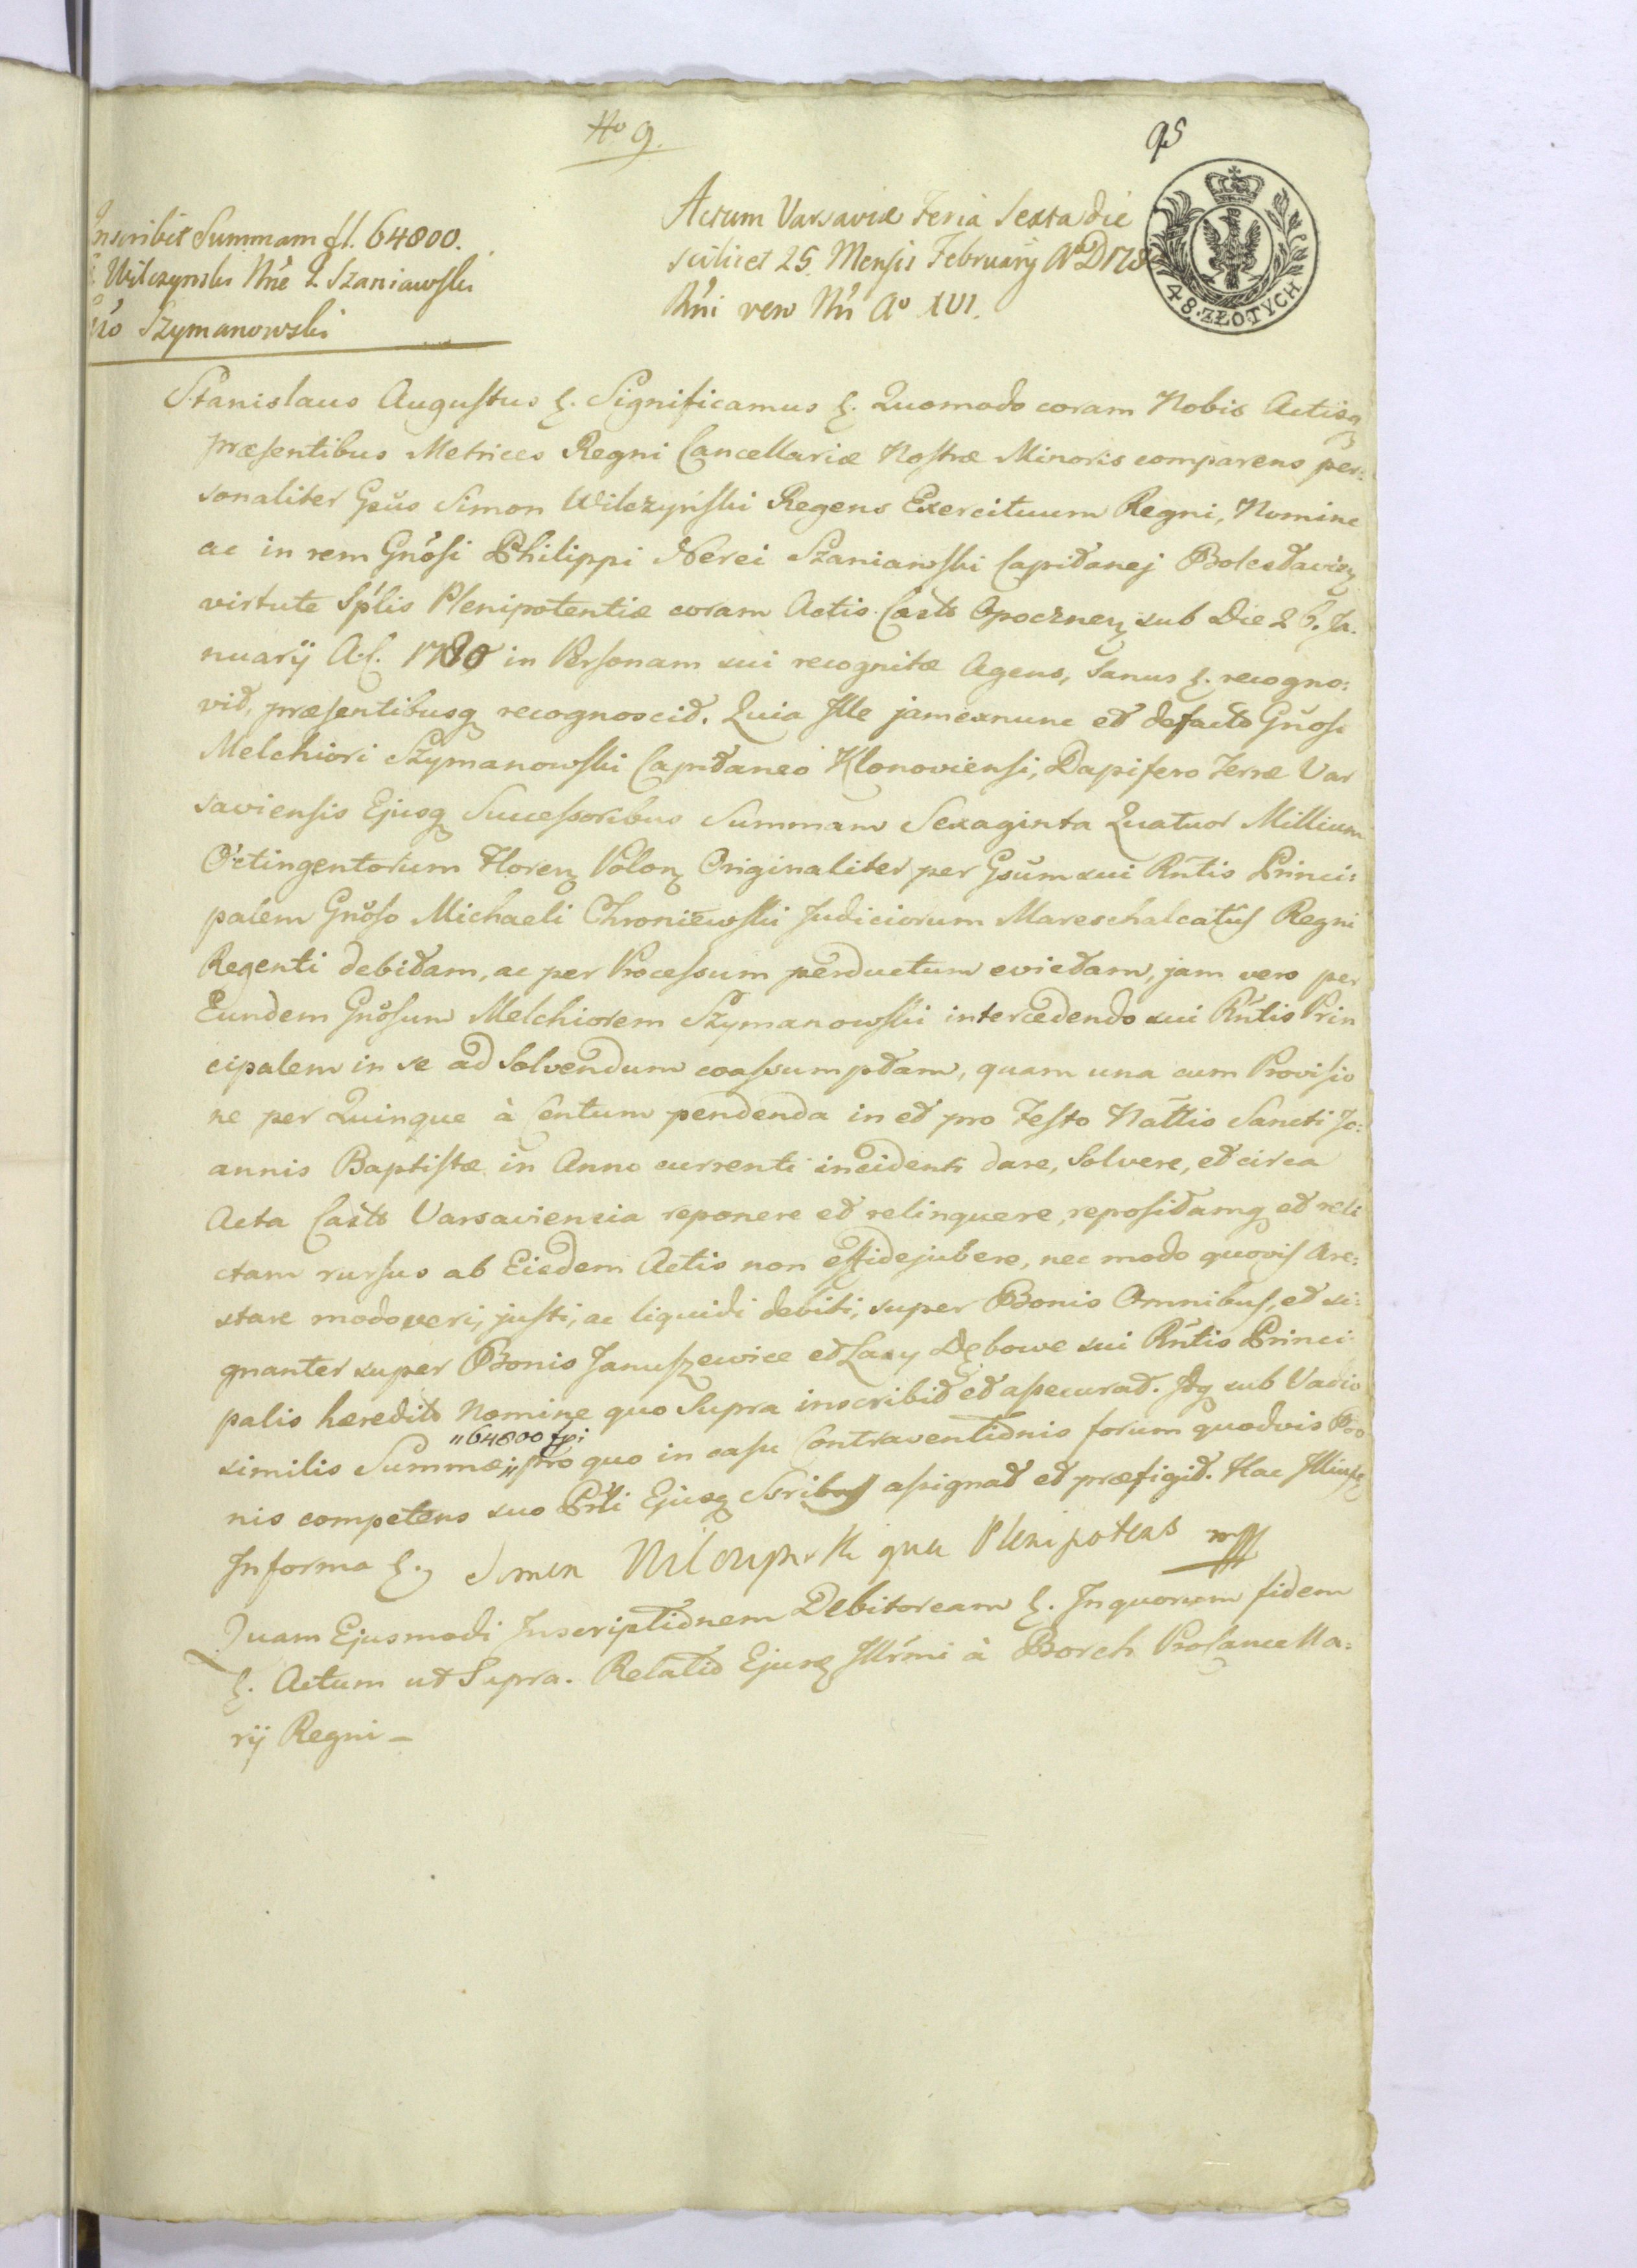 No 9.
95
48. ZŁOTYCH
Inscribit Summam fl. 64800.
Wilczynski Nñe G Szaniawski
Szymanowski
Actum Varsaviæ Feria Sexta die
scilicet 25. Mensis February Aº D 178
Rñi vero Nri Aº XVI.
Stanislaus Augustus &. Significamus &. Quomodo coram Nobis Actisq
præsentibus Metrices Regni Cancellariæ Nostræ Minoris comparens per:
sonaliter Gsus Simon Wilczyński Regens Exercituum Regni, Nomine
ac in rem Gnosi Philippi Nerei Szaniawski Capitanej Boleslavien
virtute Splis Plenipotentiæ coram Actis Casts Opocznen sub Die 26. Ja:
nuarÿ A. C. 1780 in Personam sui recognitæ Agens, Sanus &. recogno:
vit, præsentibusq recognoscit. Quia Ille jamexnunc et defacto Gnoso
Melchiori Szymanowski Capitaneo Klonoviensi, Dapifero Terræ Var
saviensis Ejusq Successoribus Summam Sexaginta Quatuor Millium
Octingentorum Floren Polon Originaliter per Gsum sui Rntis Princi:
palem Gnoso Michaeli Chroniewski Judiciorum Mareschalcatus Regni
Regenti debitam, ac per Processum perductum evictam, jam vero per
Eundem Gnosum Melchiorem Szymanowski intercedendo sui Rntis Prin
cipalem in se ad Solvendum coassumptam, quam una cum Provisio
ne per Quinque à Centum pendenda in et pro Festo Nattis Sancti Jo:
annis Baptistæ in Anno currenti incidenti dare, Solvere, et circa
Acta Casts Varsaviensia reponere et relinquere, repositamq et reli
ctam rursus ab Eisdem Actis non effidejubere, nec modo quovis Are:
stare modo veri, justi, ac liquidi debiti, super Bonis Omnibus, et si:
gnanter super Bonis Januszewice et Lasy Dębowe sui Rntis Princi
palis hæredits Nomine quo Supra inscribit et assecurat. Idq sub Vadio
"64800 fpi
similis Summæ „ pro quo in casu Contraventionis forum quodvis Poo
nis competens suo Prli Ejusq Ssribus assignat et præfigit. Hac
Informa &. Simon Wilczynski qua Plenipotens mpp
Quam Ejusmodi Inscriptionem Debitoream &. Inquorum fidem
&. Actum ut Supra. Relatio Ejusq Illrmi à Borch Procancella:
rÿ Regni –